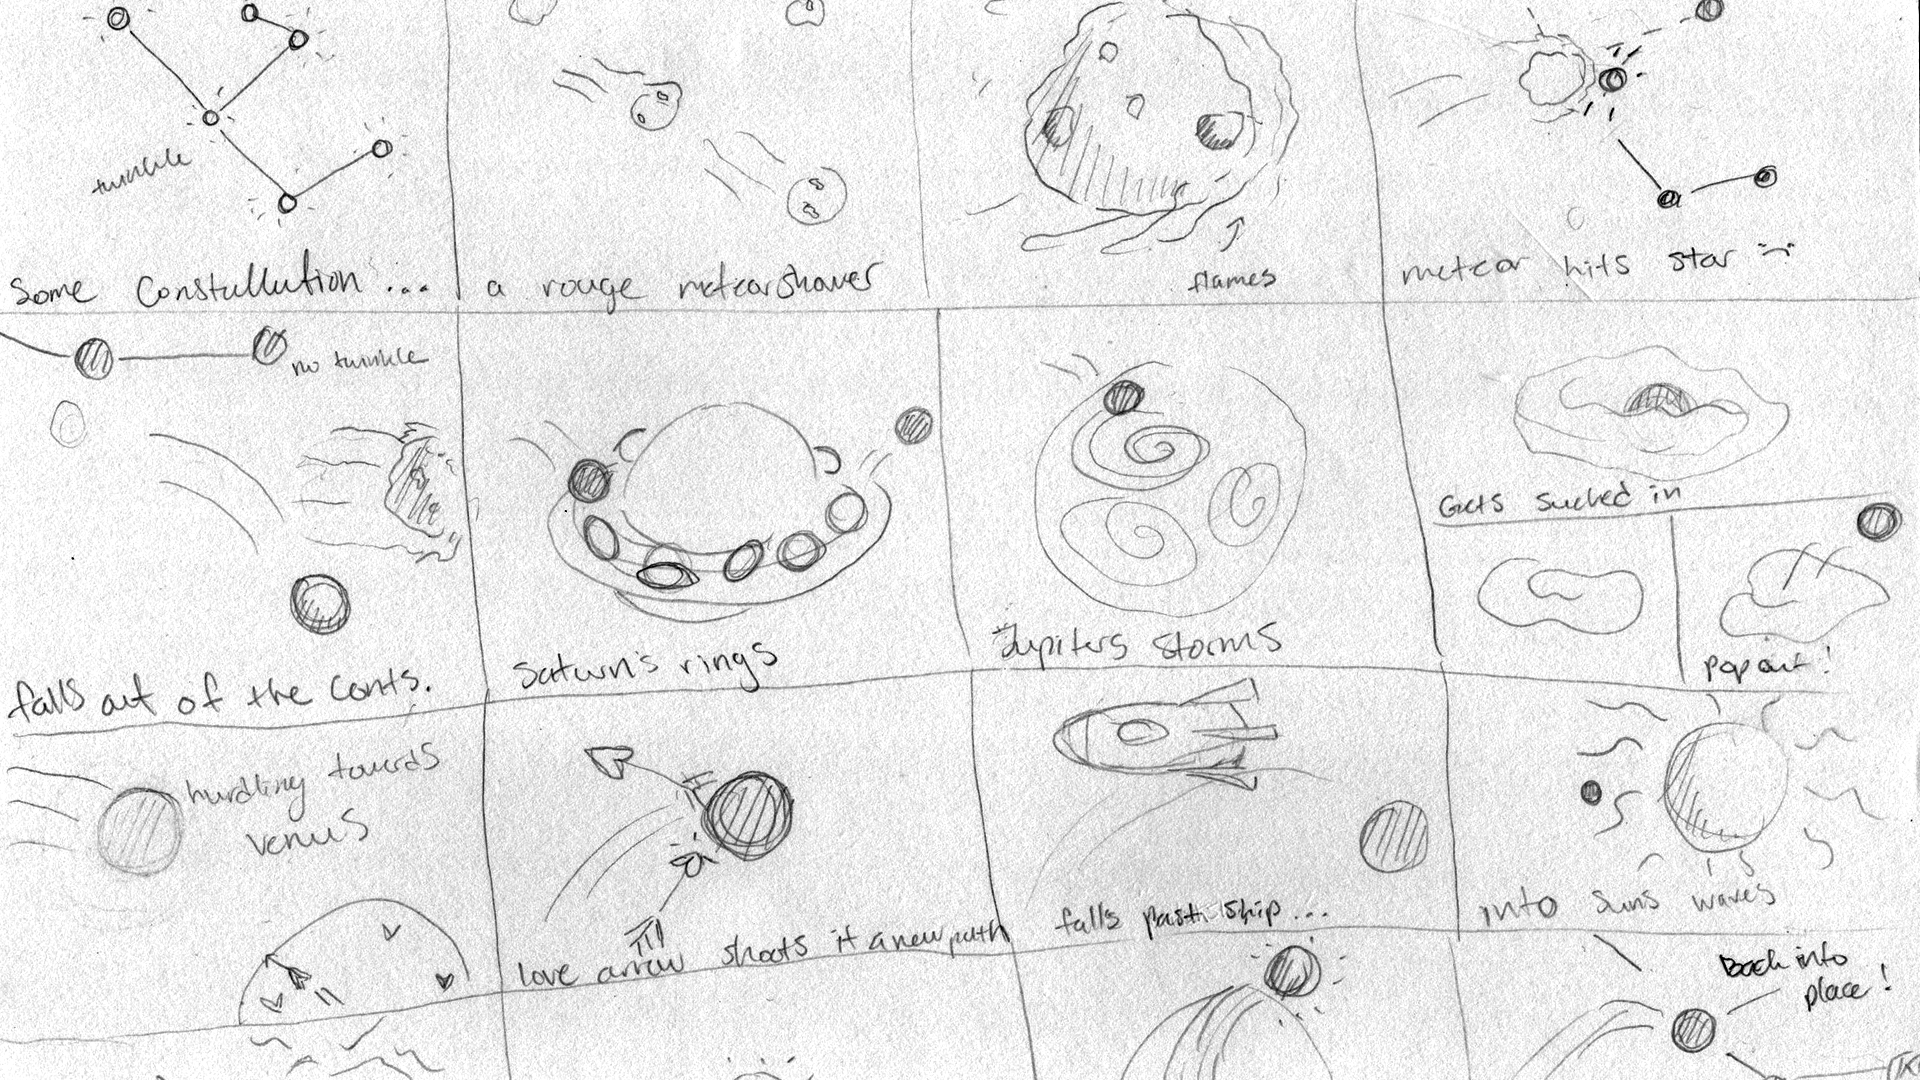 twinkle
Some Constullution...
a rouge meteorshower
flames
meteor hits star
no twinkle
falls out of the Conts.
Saturn's rings
Jupiters storms
Gets sucked in
Pop out!
hurdling towards
venus
love arrow shoots it a new path
falls past ship...
into suns waves
Back into
place!